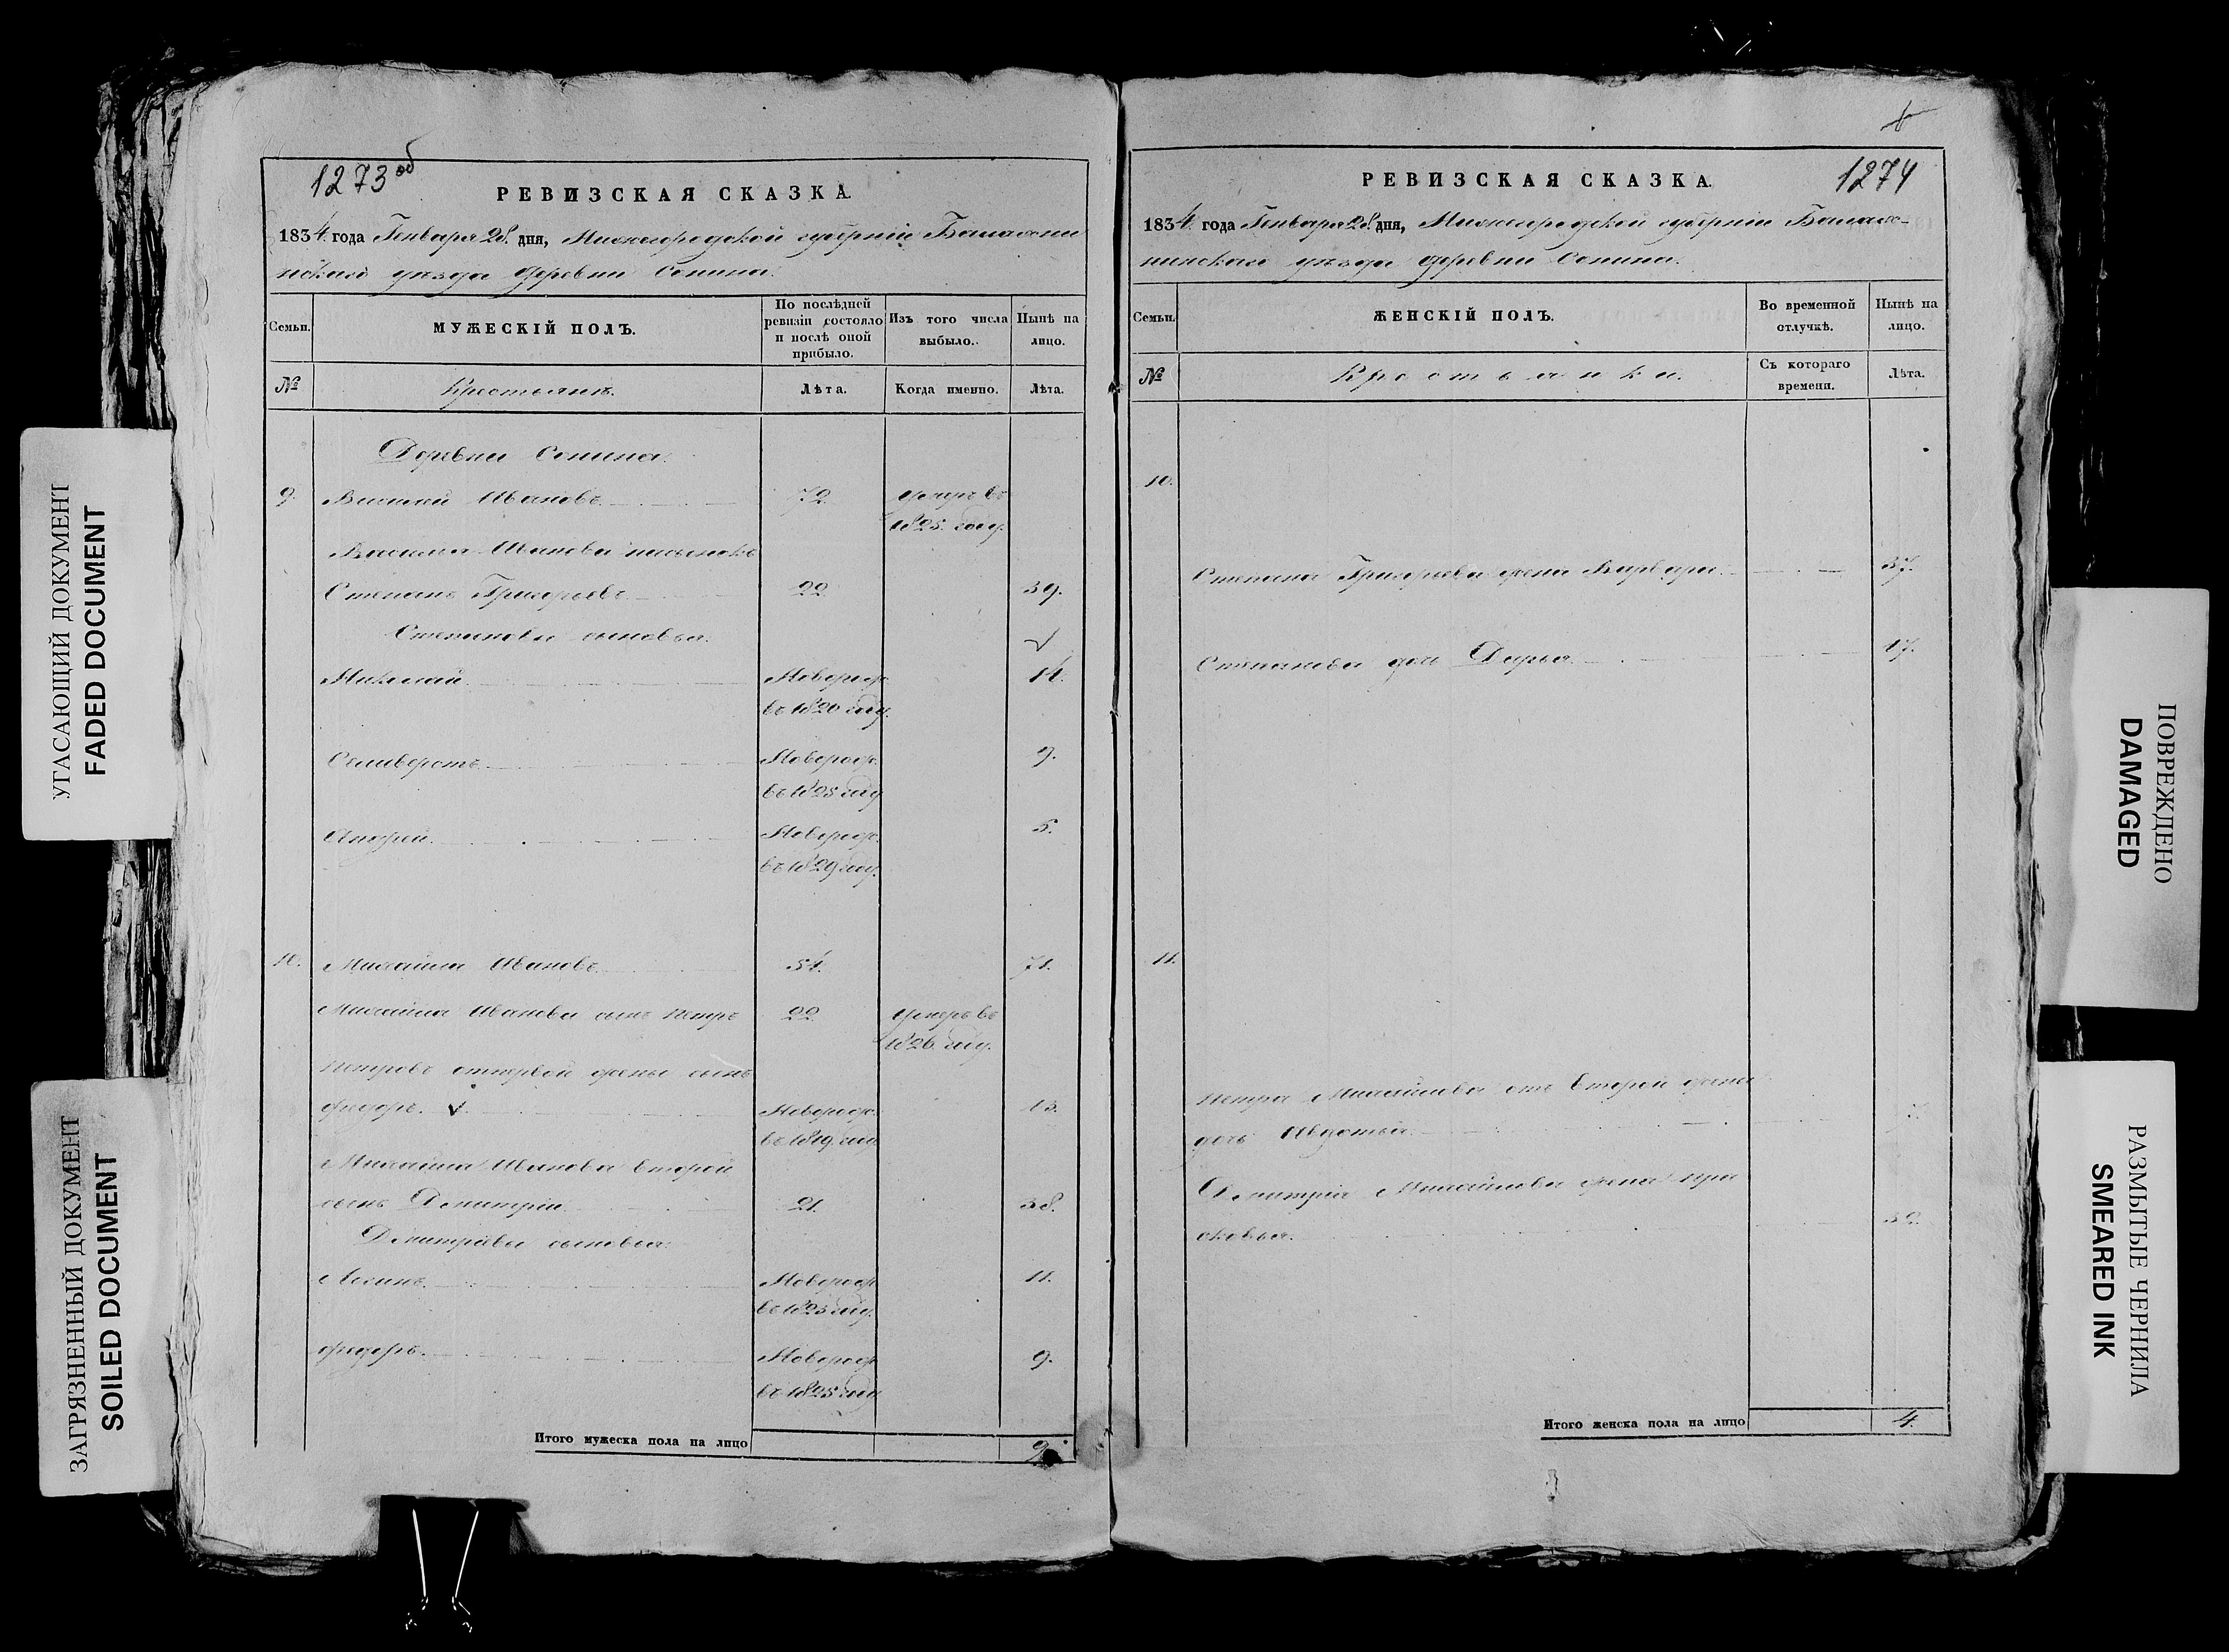 1273 об
РЕВИЗСКАЯ СКАЗКА.
1834. года Генваря 28. дня, Нижегородской губерніи Балахни-
нскаго уѣзда деревни Сопина.
Семьи.
МУЖЕСКІЙ ПОЛЪ.
По послѣдней ревизіи состояло и послѣ оной прибыло.
Изъ того числа выбыло.
Нынѣ на лицо.
№
Крестьянъ.
Лѣта.
Когда именно.
Лѣта.
Деревни Сопина.
9. Василий Ивановъ 72. умеръ въ
1825. году.
Василья Иванова пасынокъ
Степанъ Григорьевъ 22. 39.
Степановы сыновья.
Николай Новорож. 14.
въ 1820 году.
Селиверстъ Новорож. 9.
въ 1825 году
Андрей Новорож. 5.
въ 1829 году.
10. Михайла Ивановъ 54. 71.
Михайла Иванова сынъ Петръ 22. умеръ въ
1826. году.
Петровъ отпервой жены сынъ
Федоръ. Новорож. 15.
въ 1819. году
Михайла Иванова второй
сынъ Дмитрій 21. 38.
Дмитріевы сыновья.
Новорож. 11.
въ 1823 году.
Федоръ. Новорож. 9.
въ 1825 году
Итого мужеска пола на лицо 9.
1274
РЕВИЗСКАЯ СКАЗКА.
1834. года Генваря 28. дня, Нижегородской губерніи Балах-
нинскаго уѣзда деревни Сопина.
Семьи.
ЖЕНСКІЙ ПОЛЪ.
Во временной отлучкѣ.
Нынѣ на лицо.
№
Крестьянки.
Съ котораго времени.
Лѣта.
10.
Степана Григорьева жена Варвара. 37.
Степанова дочь Дарья. 17.
11.
Петра Михайлова отъ второй жены
дочь Авдотья. 7.
Дмитрія Михайлова жена Пра
сковья. 32.
Итого женска пола на лицо 4.
УГАСАЮЩИЙ ДОКУМЕНТ
FADED DOCUMENT
ЗАГРЯЗНЕННЫЙ ДОКУМЕНТ
SOILED DOCUMENT
ПОВРЕЖДЕНО
DAMAGED
РАЗМЫТЫЕ ЧЕРНИЛА
SMEARED INK